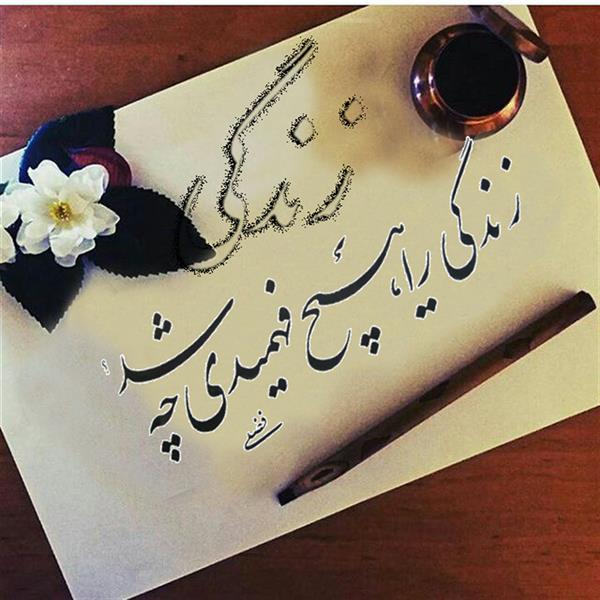 زندگی
زندگی را هیچ فهمیدی چه شد؟